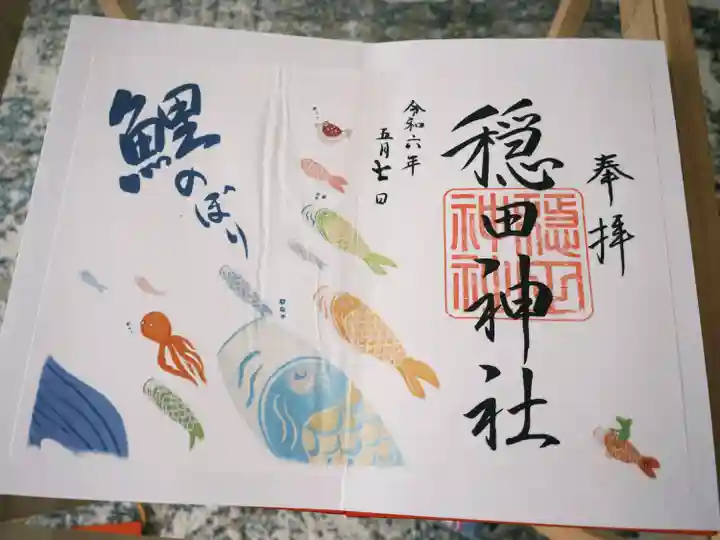 奉拝
穏田神社
穏田
神社
令和六年
五月七日
鯉のぼり